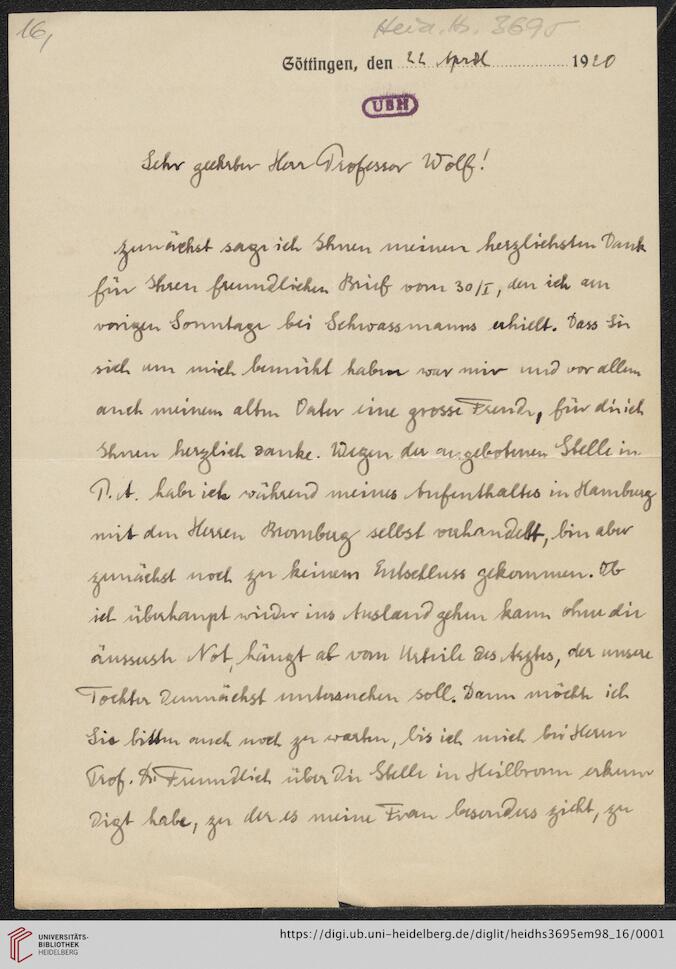 16,
Heid. Hs. 3695
Göttingen, den 22 April 1920
UBH
Sehr geehrter Herr Professor Wolf!
zunächst sage ich Ihnen meinen herzlichsten Dank
für Ihren freundlichen Brief vom 30/I, den ich am
vorigen Sonntage bei Schwassmanns erhielt. Dass Sie
sich um mich bemüht haben war mir und vor allem
auch meinem alten Vater eine grosse Freude, für die ich
Ihnen herzlich danke. Wegen der angebotenen Stelle in
P. A. habe ich während meines Aufenthaltes in Hamburg
mit den Herren Bromberg selbst verhandelt, bin aber
zunächst noch zu keinem Entschluss gekommen. Ob
ich überhaupt wieder ins Ausland gehen kann ohne die
äusserste Not, hängt ab vom Urteile des Arztes, der unsere
Tochter demnächst untersuchen soll. Dann möchte ich
Sie bitten auch noch zu warten, bis ich mich bei Herrn
Prof. Dr. Freundlich über die Stelle in Heilbronn erkun
digt habe, zu der es meine Frau besonders zieht, zu
UNIVERSITÄTS-
BIBLIOTHEK
HEIDELBERG
https://digi.ub.uni-heidelberg.de/diglit/heidhs3695em98_16/0001